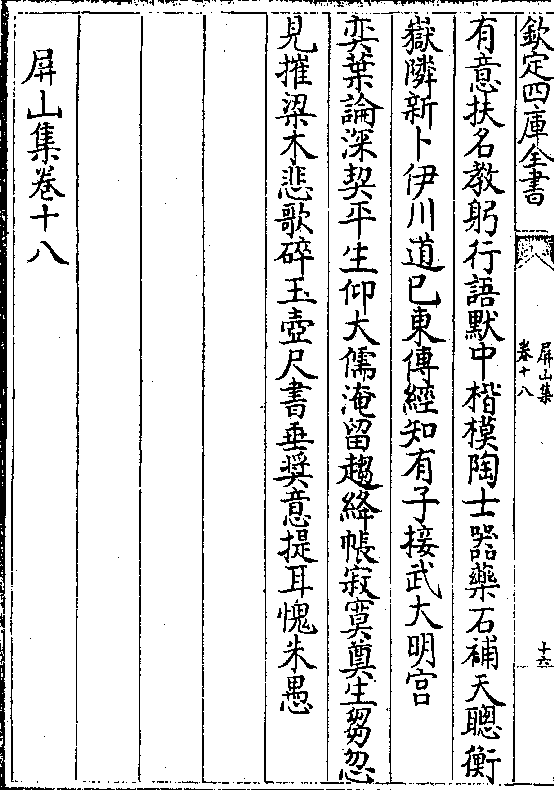 欽定四庫全書
屏山集
卷十八
十六
有意扶名教躬行語默中楷模陶士器藥石補天聰衡
嶽隣新卜伊川道已東傳經知有子接武大明宮
奕葉論深契平生仰大儒淹留趨絳帳寂寞奠生芻忽
見摧梁木悲歌碎玉壺尺書垂奨意提耳愧朱愚
屏山集卷十八